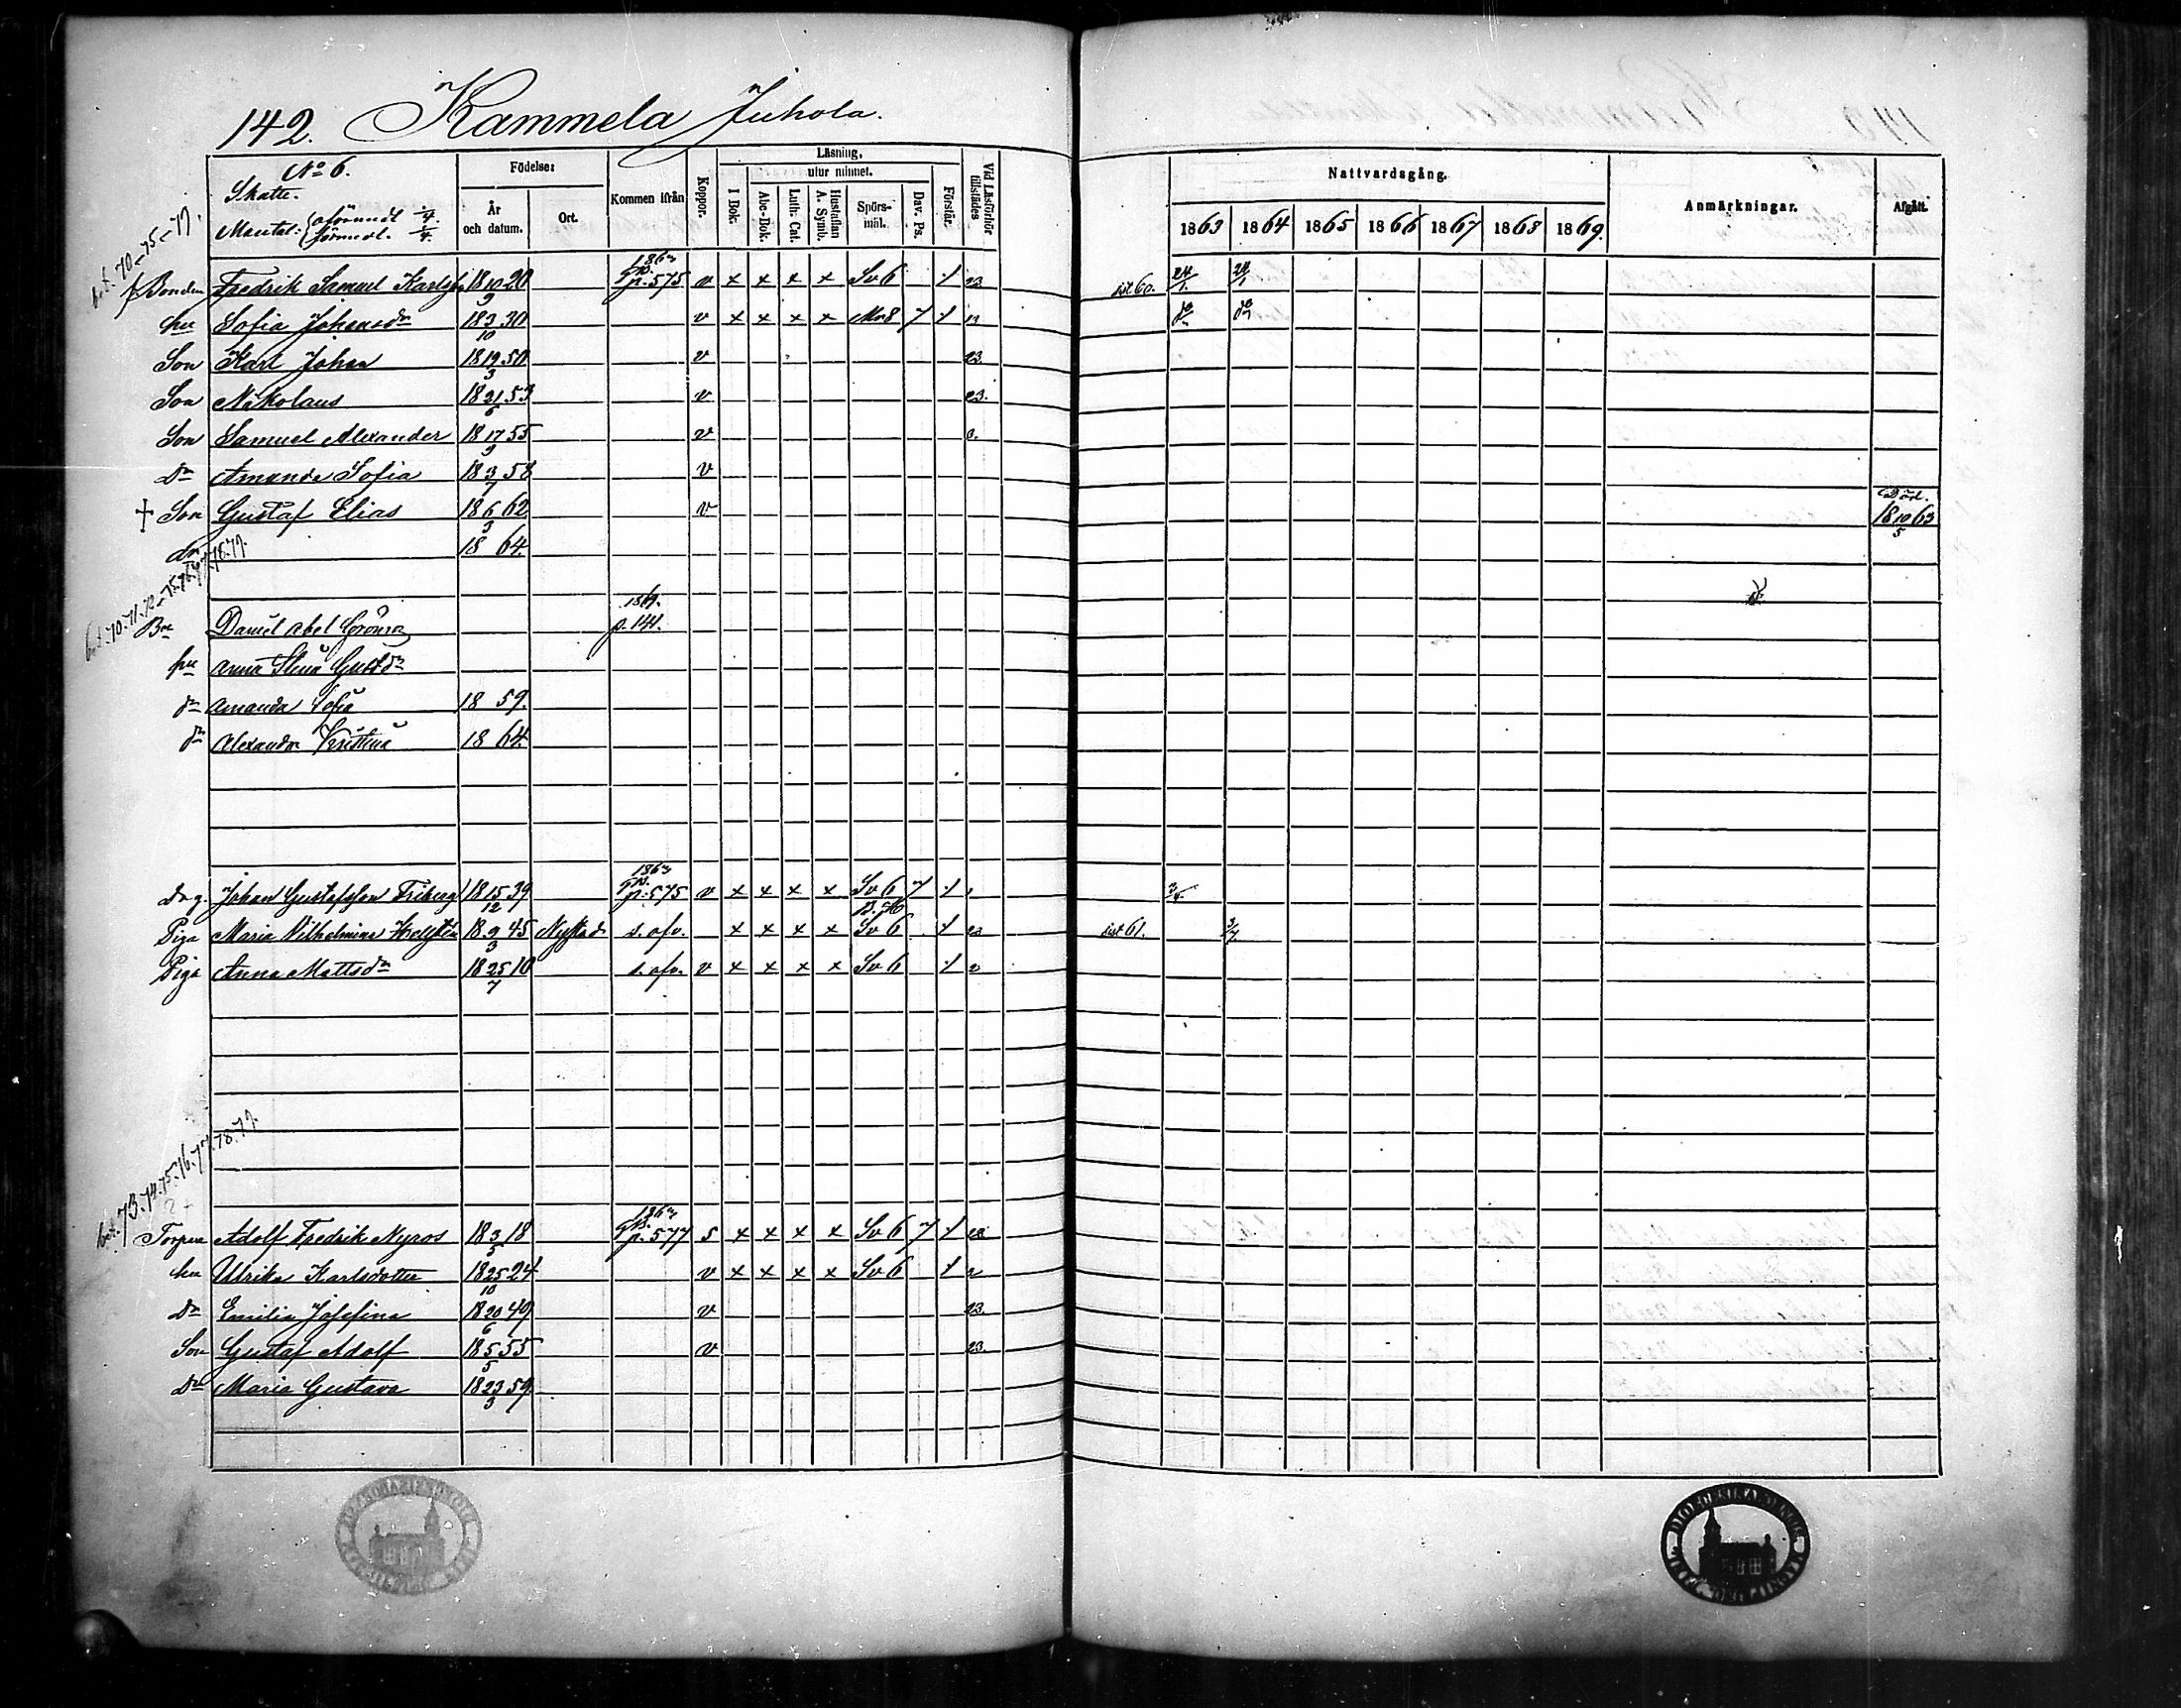 142. Kammela Juhola.
No 6.
Skatte.
Mantal: oförmedl. 1/4.
förmedl. 1/4.
Födelse:
År och datum.
Ort.
Kommen ifrån
Koppor.
Läsning,
utur minnet.
I Bok.
Abc-Bok.
Luth: Cat.
Hustaflan A. Symb.
Spörs-mål.
Dav. Ps.
Förstår.
Vid Läsförhör tillstädes
Nattvardsgång.
1863 1864 1865 1866 1867 1868 1869.
Anmärkningar.
Afgått.
Bonden Fredrik Samuel Karlss. 18 10/9 20 p. 575 v x x x x Sv 6 23 sist 60. 24/1. 24/1
hu Sofia Johansdr 18 3/10 30 v x x x x 7
Son Karl Johan 18 19/3 50 v 23.
Son Nikolaus 18 21/6 53 v 23.
Son Samuel Alexander 18 17/9 55 v
Dr Amanda Sofia 18 3/7 58 v
† Son Gustaf Elias 18 6/3 62 v Död. 18 10/5 63
dr 18 64.
Daniel Abel Grönros 1869. p. 141.
hu Anna Stina Gustdr
dr Amanda Sofia 18 59.
dr Alexandra Kristina 18 64.
drg. Johan Gustafsson Friberg 18 15/12 39 p. 575 v x x x x Sv 6 7
Piga Maria Vilhelmina 18 9/3 45 Nystad s. ofv. x x x x Sv 6 23 sist 61. 3/7.
Piga Anna Mattsdr 18 25/7 10 s. ofv. v x x x x Sv 6 2
bet. 73. 74. 75. 76. 77. 78. 79.
Torpare Adolf Fredrik Nyros 18 3/5 18 p. 577 s x x x x Sv 6 7
hu Ulrika Karlsdotter 18 25/10 24 v x x x x Sv 6 2
Dr Emilia Josefina 18 20/6 49 v 23.
Son Gustaf Adolf 18 5/5 55 v 23.
Dr Maria Gustava 18 23/3 59